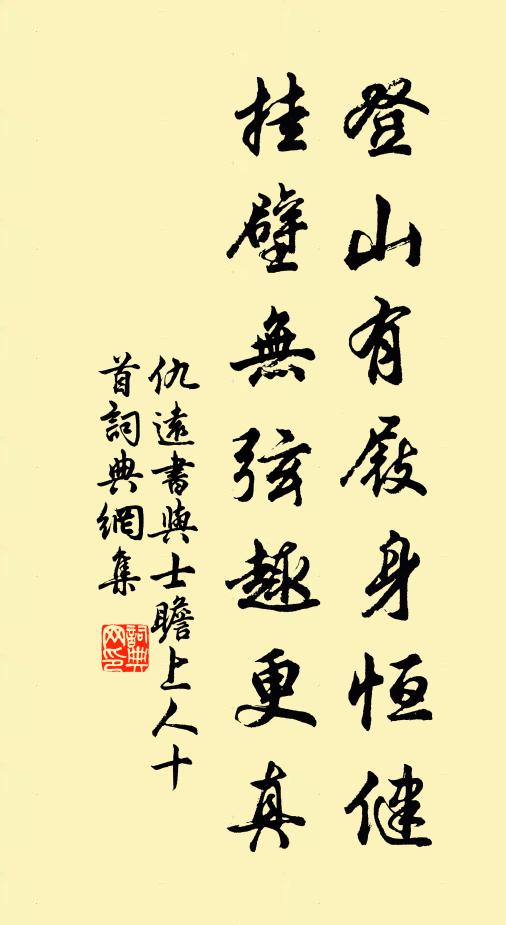 登山有屐身恒健
挂壁無弦趣更真
仇遠書與士瞻上人十
首詞典網集
詞典
网印